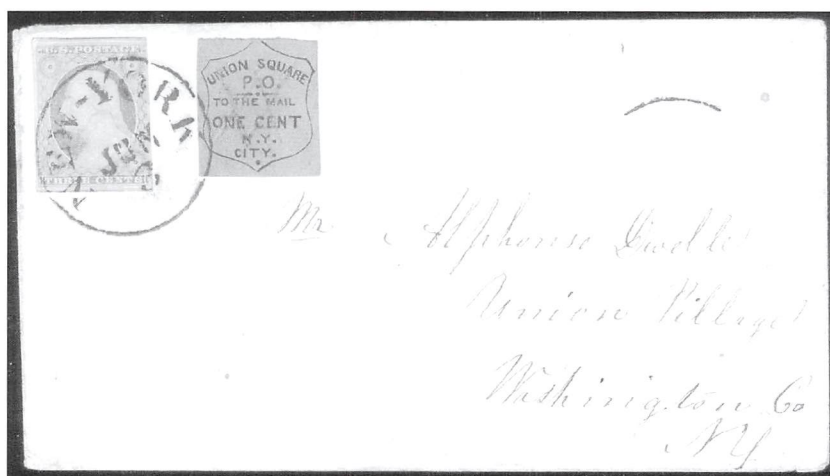 U.S. POSTAGE
THREE CENTS
NEW-YORK
UNION SQUARE
P.O.
TO THE MAIL
ONE CENT
N.Y.
CITY.
Mr Alphonso
Union Village
Washington Co
NY